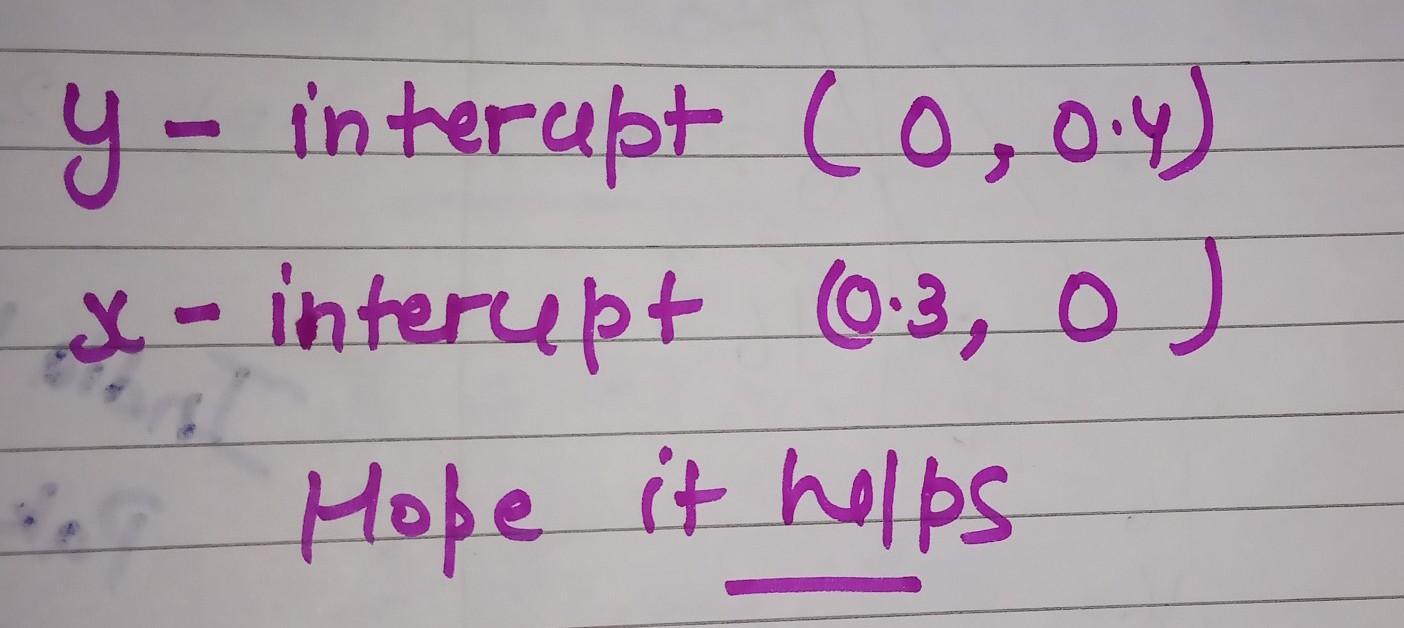 y - intercept (0, 0.4)
x - intercept (0.3, 0)
Hope it helps